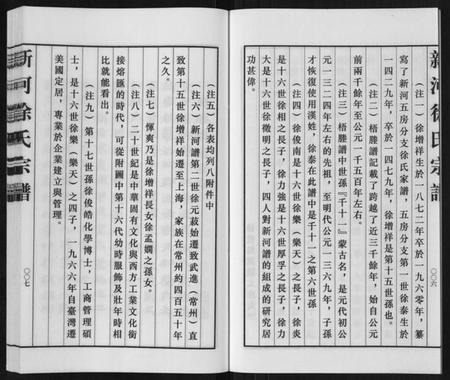 新河徐氏宗譜
〇〇六
(注一) 徐增祥生於一八七二年卒於一九六零年，纂
寫了新河五房分支徐氏家譜，五房分支第一世徐泰生於
一四二九年，卒於一四七九年，徐增祥是第十五世孫也。
(注二) 梧塍譜記載了跨越了近三千餘年，始自公元
前兩千餘年至公元一千五百年左右。
(注三) 梧塍譜中世孫『千十一』蒙古名，是元代初公
元一三二四年左右的先祖，至明代公元一三六九年，子孫
才恢復使用漢姓，徐泰在此譜中是千十一之第六世孫
(注四) 徐俊南是十六世徐樂(樂天)之長子，徐炎
是十六世徐相之長子，徐力強是十六世厚孚之長子，徐力
大是十六世徐微明之長子，四人對新河譜的組成的研究居
功甚偉。
(注五) 各表均列八附件中
(注六) 新河譜第二世徐元菘始遷致武進(常州)直
致第十五世徐增祥始遷至上海，家族在常州約四百五十年
之久。
(注七) 惲爽乃是徐增祥長女徐孟嫻之孫女。
(注八) 二十世紀是中華固有文化與西方工業文化銜
接熔匯的時代，可從附圖中第十六代幼時服飾及壯年時相
比就能看出。
(注九) 第十七世孫徐俊皓化學博士，工商管理碩
士，是十六世徐樂(樂天)之四子，一九六六年自臺灣遷
美國定居，專業於企業建立與管理。
新河徐氏宗譜
〇〇七